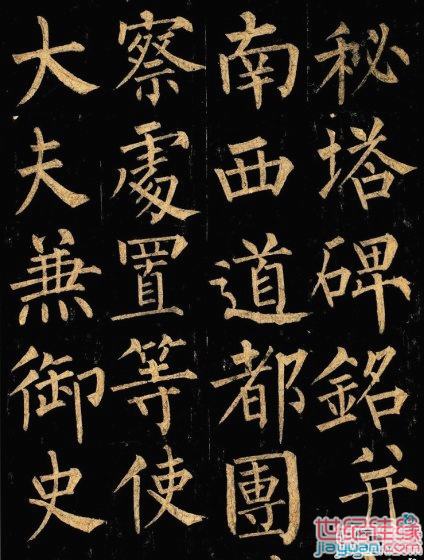 秘塔碑銘并
南西道都團
察處置等使
大夫兼御史
世纪佳缘
jiayuan.com